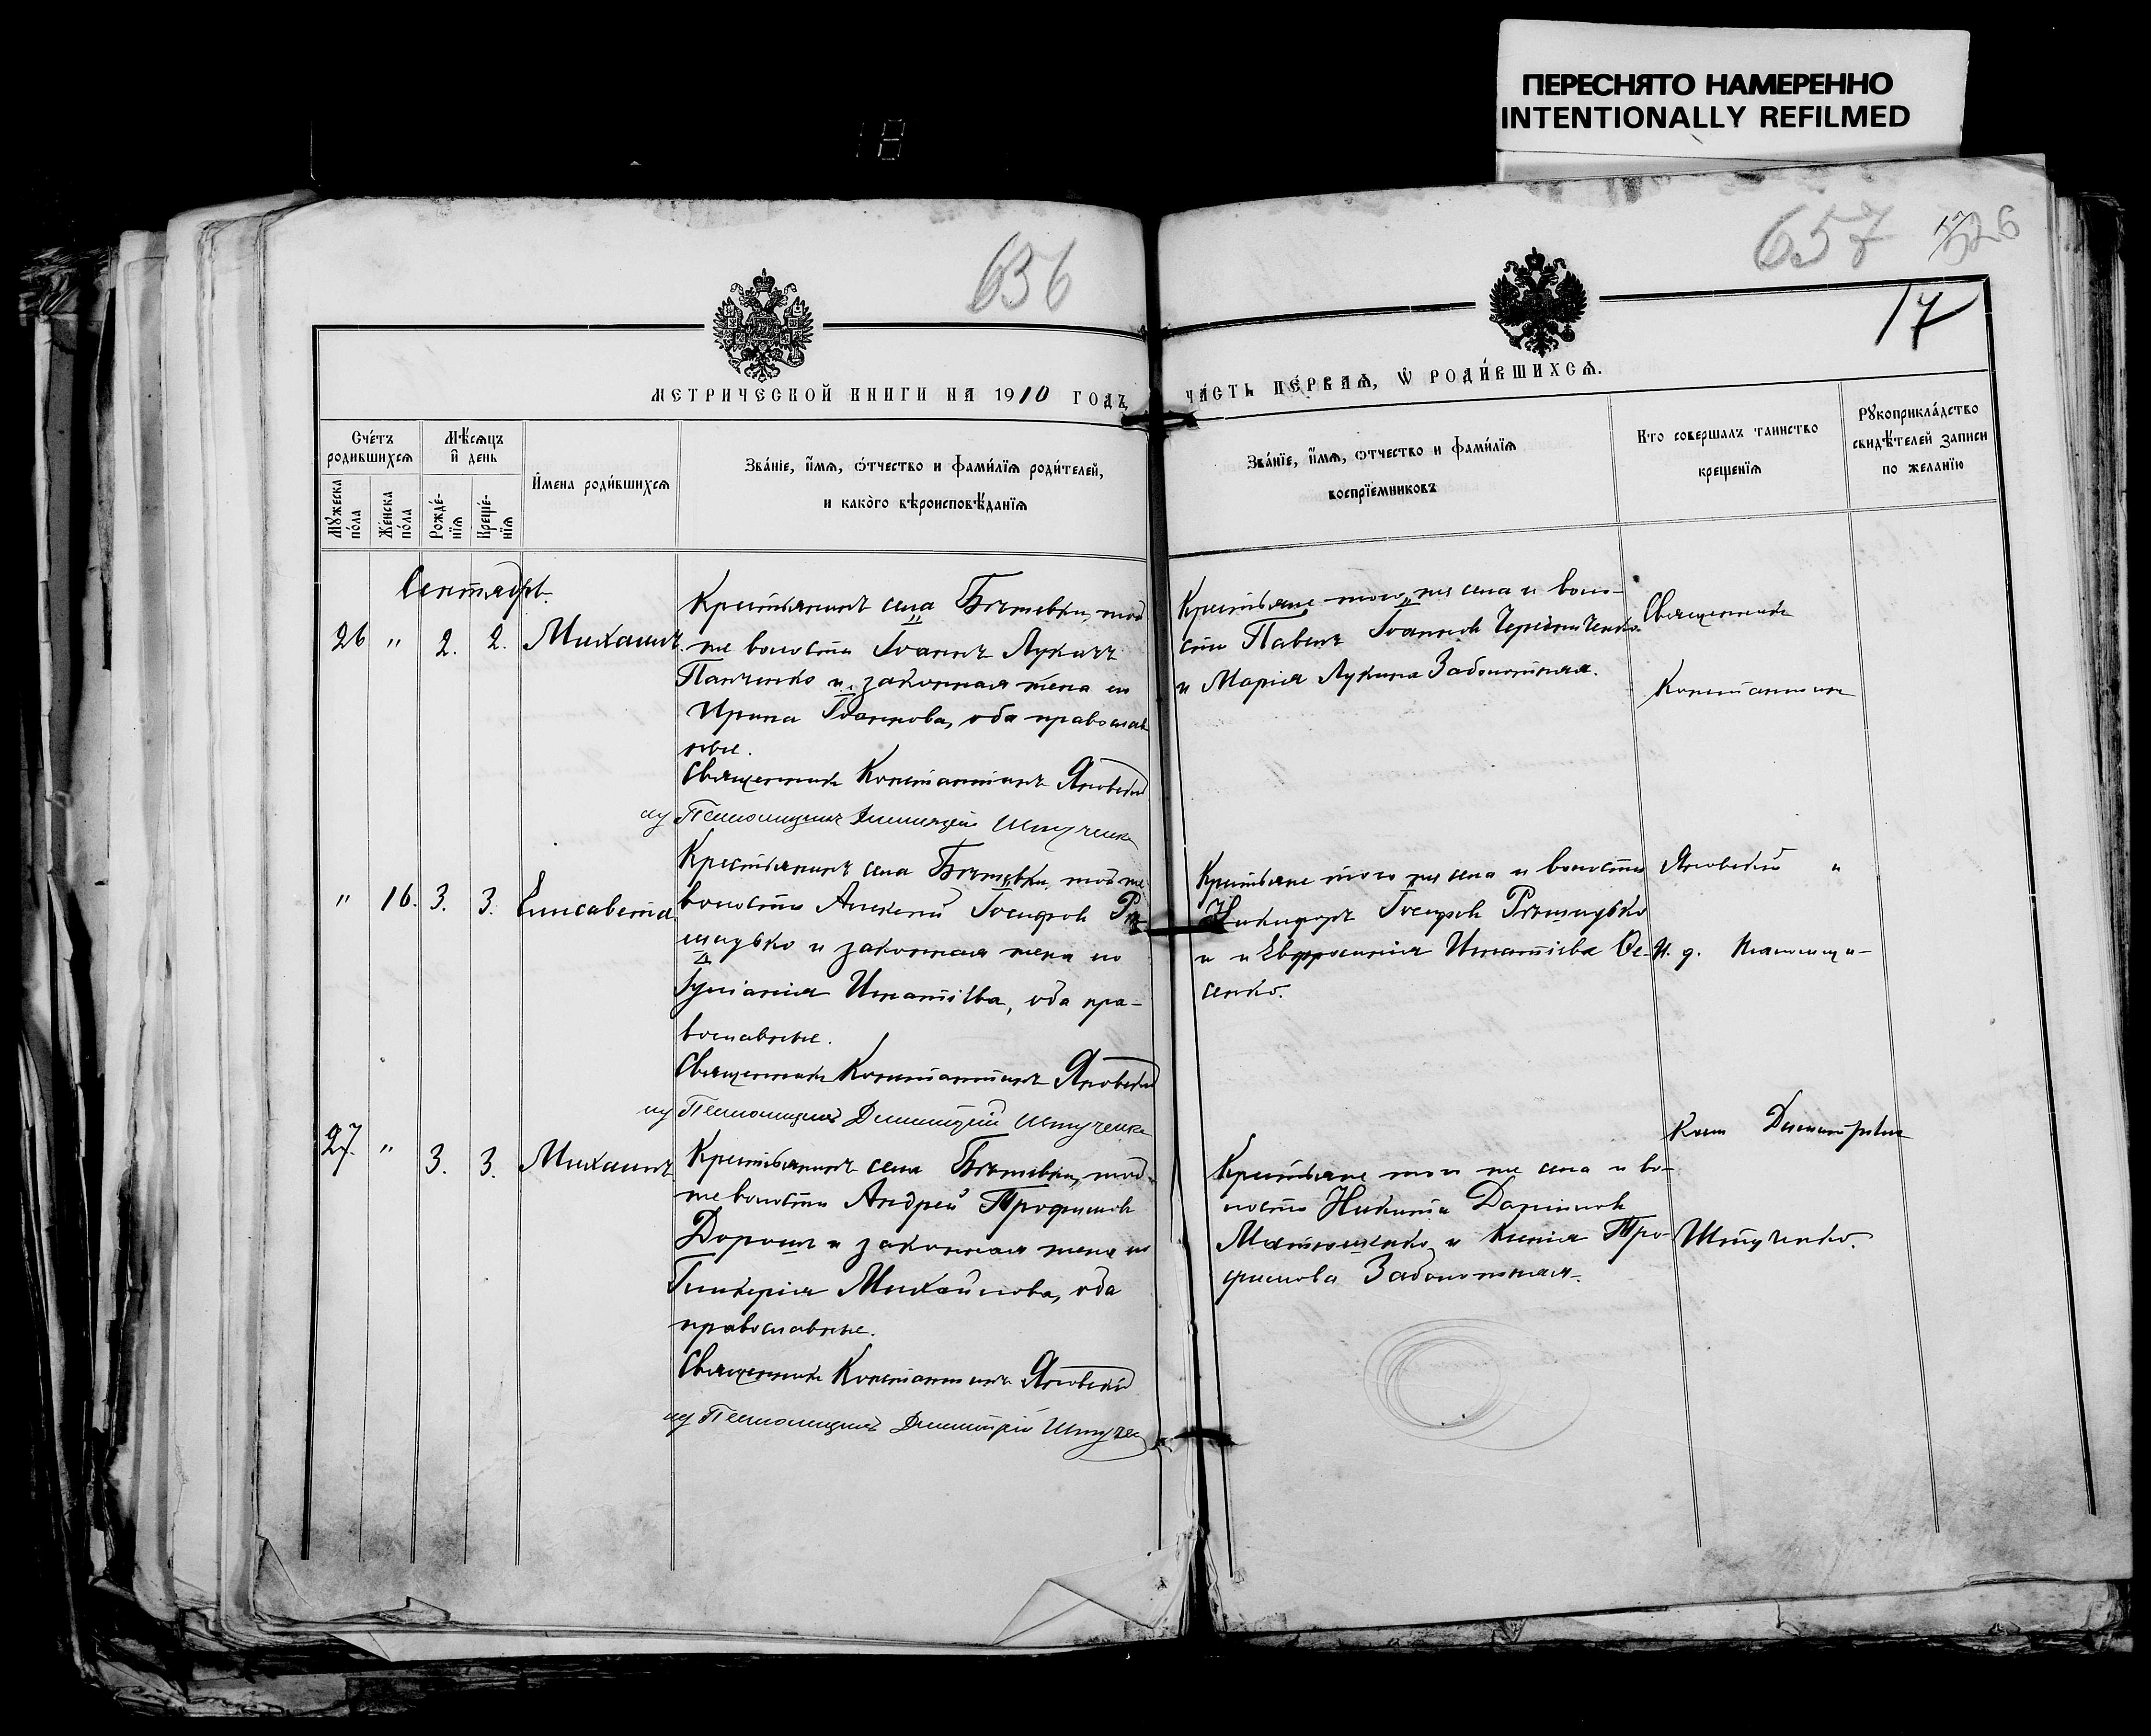 ПЕРЕСНЯТО НАМЕРЕННО
INTENTIONALLY REFILMED
18
636
657
17
МЕТРИЧЕСКОЙ КНИГИ НА 1910 ГОДЪ,
ЧА́СТЬ ПЕ́РВАѦ, Ѡ҆ РОДИ́ВШИХСѦ.
Сче́тъ родившихсѧ
Мꙋ́жеска по́ла
Же́нска по́ла
Мѣ́сѧцъ и҆ день
Рожде́-нїѧ
Креще́-нїѧ
И҆мена роди́вшихсѧ
Зва́нїе, и҆́мѧ, ѻ҆́тчество и фами́лїѧ роди́телей,
и како́го вѣроисповѣ́данїѧ
Зва́нїе, и҆́мѧ, ѻ҆тчество и фами́лїѧ
воспрїе́мниковъ
Кто совершалъ таинство
крещенїѧ
Рꙋкоприкла́дство
свидѣ́телей записи
по желанїю
Сентябрь.
26 " 2. 2. Михаилъ.
Крестьянинъ села той
же волости Іоаннъ Лукичъ
Панченко и законная жена его
Ирина Іоаннова, оба православ
ные.
Священникъ Константинъ Яновскій
ид Псаломщика Димитрій Штученко
Крестьяне того же села и воло-
сти Павелъ Іоанновъ Чередниченко
и Марія Лукина Заболотная.
Священникъ
Константинъ
" 16. 3. 3. Елисавета
Крестьянинъ села той же
волости Алексій Іосифовъ Рѣ
шидько и законная жена его
Иуліанія Игнатіева, оба пра-
вославные.
Священникъ Константинъ Яновскій
ид Псаломщика Димитрій Штученко
Крестьяне того же села и волости
Никифоръ Іосифовъ Рѣшидько
и Евфросинія Игнатіева Ов-
сенко.
Яновскій "
И. д. Псаломщи-
27. " 3. 3. Михаилъ
Крестьянинъ села той
же волости Андрей Трофимовъ
Дорошъ и законная жена его
Гликерія Михайлова, оба
православные.
Священникъ Константинъ Яновскій
ид Псаломщика Димитрій Штучен
Крестьяне того же села и во-
лости Никита Даніиловъ
Матюшенко и Ксенія Тро-
фимова Заболотная.
Димитрій
Штученко.